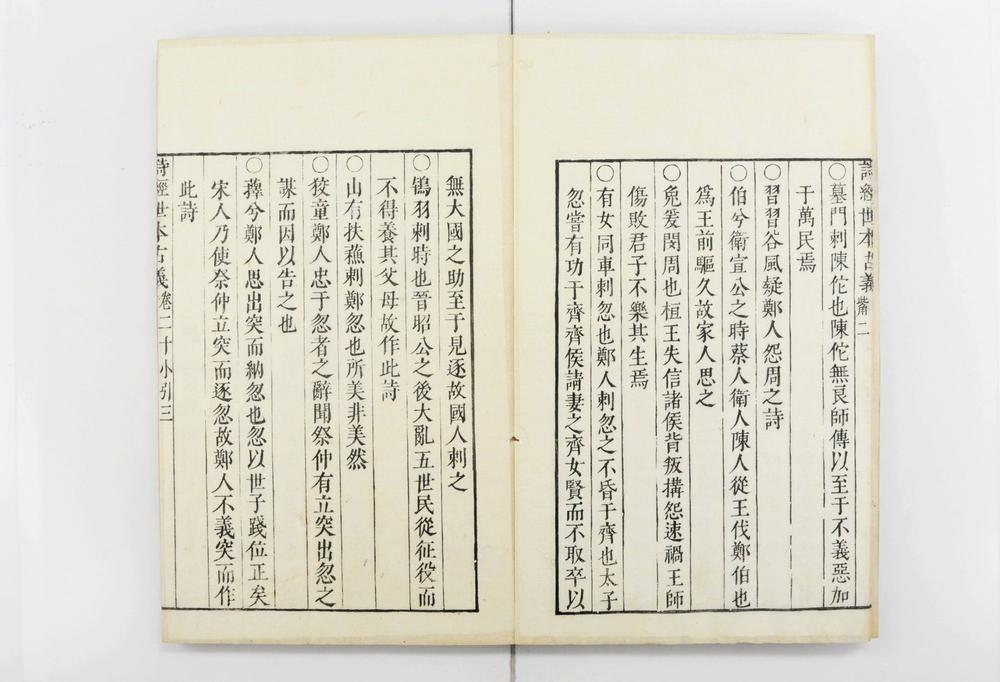 詩經世本古義
二
○墓門刺陳佗也陳佗無良師傅以至于不義惡加
于萬民焉
○習習谷風疑鄭人怨周之詩
○伯兮衛宣公之時蔡人衛人陳人從王伐鄭伯也
爲王前驅久故家人思之
○兔爰閔周也桓王失信諸侯背叛搆怨速禍王師
傷敗君子不樂其生焉
○有女同車刺忽也鄭人刺忽之不昏于齊也太子
忽嘗有功于齊齊侯請妻之齊女賢而不取卒以
無大國之助至于見逐故國人刺之
○鴇羽刺時也晉昭公之後大亂五世民從征役而
不得養其父母故作此詩
○山有扶蘇刺鄭忽也所美非美然
○狡童鄭人忠于忽者之辭聞祭仲有立突出忽之
謀而因以告之也
○蘀兮鄭人思出突而納忽也忽以世子踐位正矣
宋人乃使祭仲立突而逐忽故鄭人不義突而作
此詩
詩經世本古義卷二十小引三